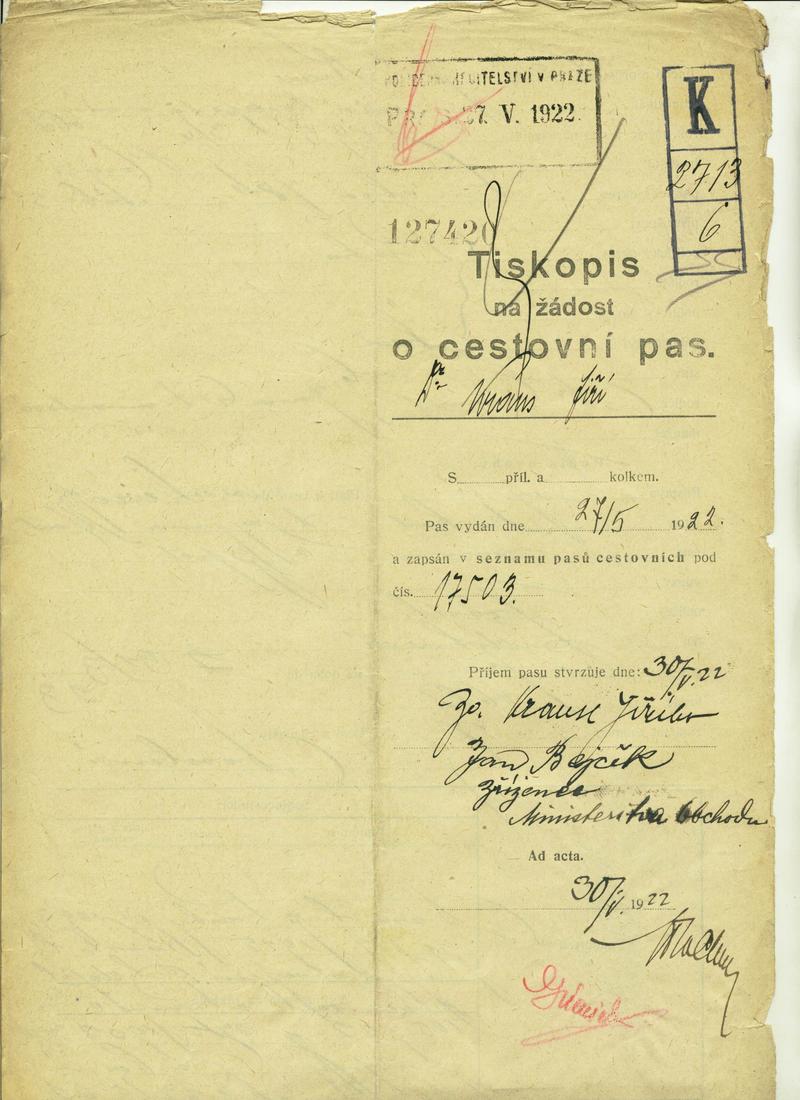 V PRAZE
27. V. 1922
K
2713
6
127420
Tiskopis
na žádost
o cestovní pas.
Dr Kraus Jiří
S........příl. a ........ kolkem.
Pas vydán dne 27/5 1922.
a zapsán v seznamu pasů cestovních pod
čís. 17503.
Příjem pasu stvrzuje dne: 30/V. 22
Krause Jiřího
Jan Bejček
zřízenec
Ministerstva Obchodu
Ad acta.
30/V. 1922